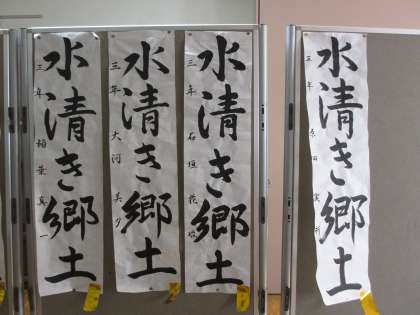 水清き郷土
三年
水清き郷土
三年 石垣
水清き郷土
三年 大河 美夕
水清き郷土
三年 稲葉 真一